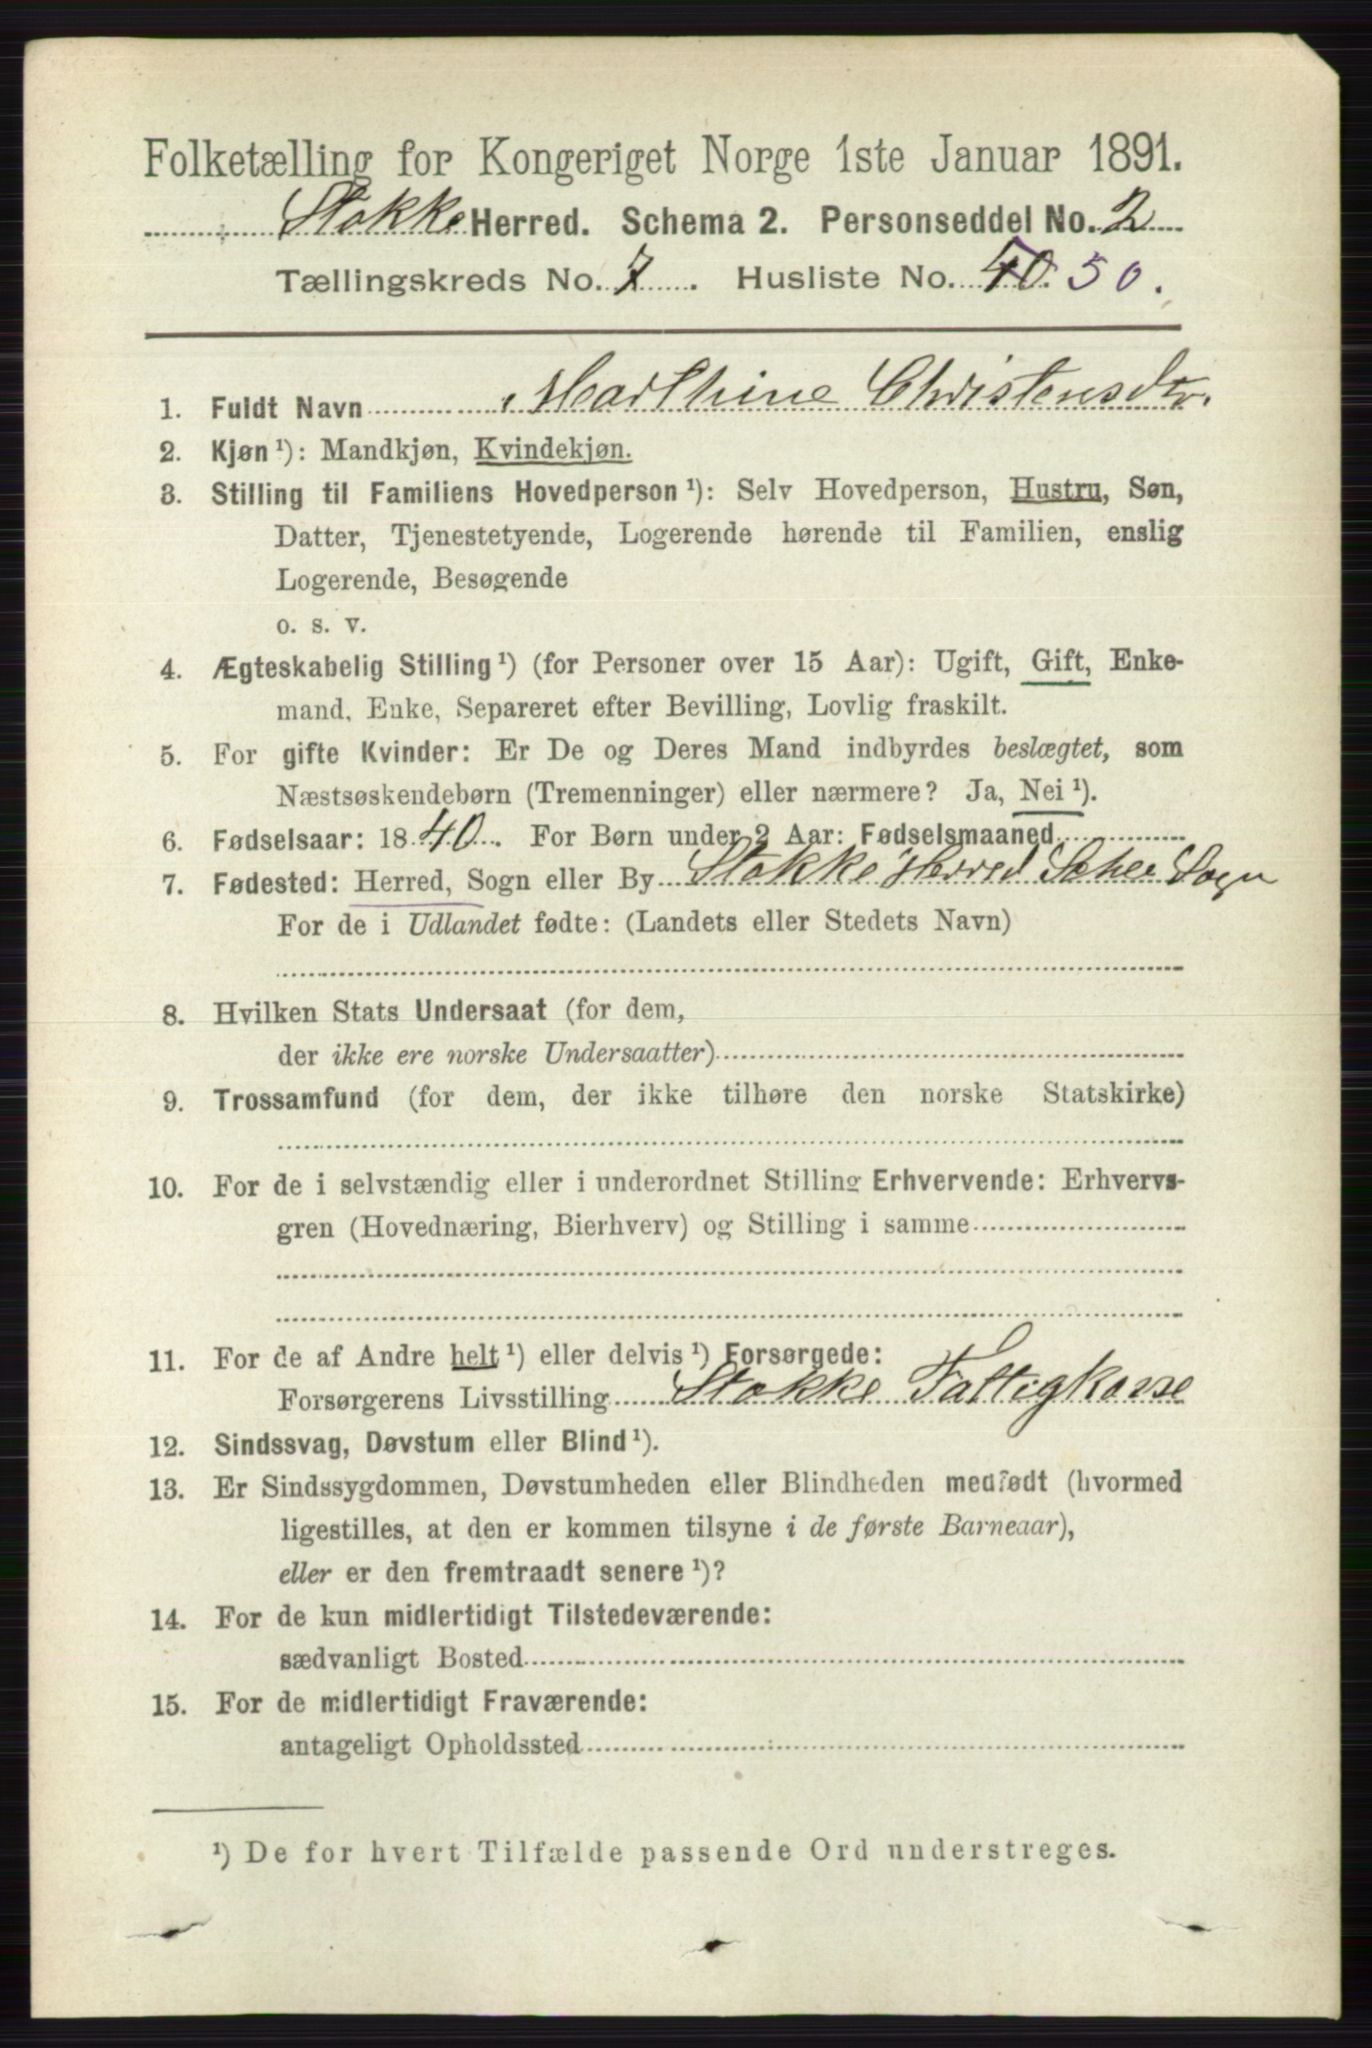 Folketælling for Kongeriget Norge 1ste Januar 1891.
Stokke Herred. Schema 2. Personseddel No. 2
Tællingskreds No. 7. Husliste No. 40. 50.
1. Fuldt Navn Marthine Christensdtr.
2. Kjøn ¹): Mandkjøn, Kvindekjøn.
3. Stilling til Familiens Hovedperson ¹): Selv Hovedperson, Hustru, Søn,
Datter, Tjenestetyende, Logerende hørende til Familien, enslig
Logerende, Besøgende
o. s. v.
4. Ægteskabelig Stilling ¹) (for Personer over 15 Aar): Ugift, Gift, Enke-
mand, Enke, Separeret efter Bevilling, Lovlig fraskilt.
5. For gifte Kvinder: Er De og Deres Mand indbyrdes beslægtet, som
Næstsøskendebørn (Tremenninger) eller nærmere? Ja, Nei ¹).
6. Fødselsaar: 1840. For Børn under 2 Aar: Fødselsmaaned
7. Fødested: Herred, Sogn eller By Stokke Herred Sogn
For de i Udlandet fødte: (Landets eller Stedets Navn)
8. Hvilken Stats Undersaat (for dem,
der ikke ere norske Undersaatter)
9. Trossamfund (for dem, der ikke tilhøre den norske Statskirke)
10. For de i selvstændig eller i underordnet Stilling Erhvervende: Erhvervs-
gren (Hovednæring, Bierhverv) og Stilling i samme
11. For de af Andre helt ¹) eller delvis ¹) Forsørgede:
Forsørgerens Livsstilling Stokke Fattigkasse
12. Sindssvag, Døvstum eller Blind ¹).
13. Er Sindssygdommen, Døvstumheden eller Blindheden medfødt (hvormed
ligestilles, at den er kommen tilsyne i de første Barneaar),
eller er den fremtraadt senere ¹)?
14. For de kun midlertidigt Tilstedeværende:
sædvanligt Bosted
15. For de midlertidigt Fraværende:
antageligt Opholdssted
¹) De for hvert Tilfælde passende Ord understreges.